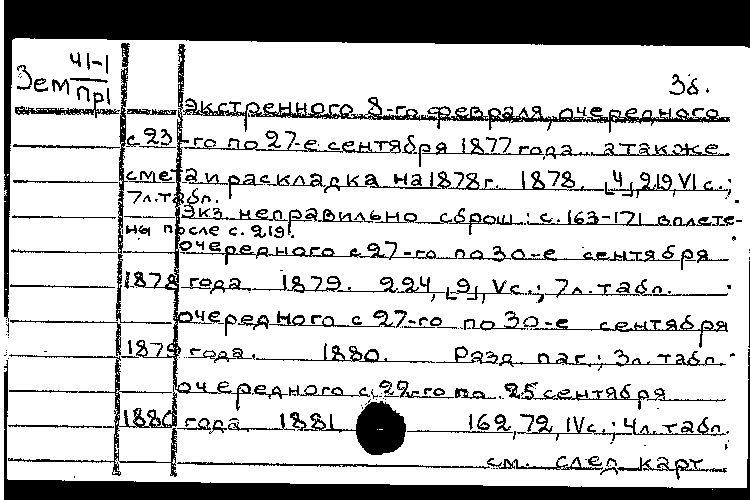 Зем ЧI-I
ПрI
3б.
экстренного 8-го февраля, очередного
с 23-го по 27-е сентября 1877 года а также
смета и раскладка на 1878 г. 1878. [4], 219, VI с.;
7 л. табл.
Экз. неправильно сброш: с. 163-171 вплете-
ны после с. 219.
очередного с 27-го по 30-е сентября
1878 года. 1879. 224, [9], V с.; 7 л. табл.
очередного с 27-го по 30-е сентября
1879 года. 1880. Разд. паг.; 3 л. табл.
очередного с 22-го по 25 сентября
1880 года 1881 162, 72, IV с.; 4 л. табл.
см. след. карт